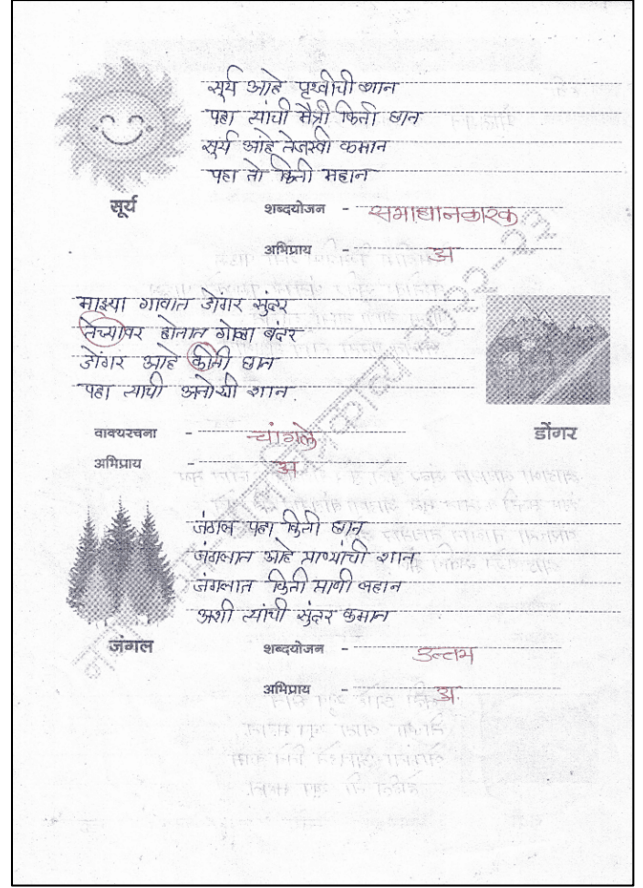 सूर्य आहे पृथ्वीची शान
पहा त्यांची मैत्री किती छान
सूर्य आहे तेजस्वी कमान
पहा तो किती महान
सूर्य
शब्दयोजन - समाधानकारक
अभिप्राय - अ
माझ्या गावात डोंगर सुंदर
तिच्यावर होतात गोळा बंदर
डोंगर आहे कीती छान
पहा त्याची अनोखी शान.
वाक्यरचना - चांगले
अभिप्राय - अ
डोंगर
जंगल पहा किती छान
जंगलात आहे प्राण्यांची शान
जंगलात किती प्राणी लहान
अशी त्यांची सुंदर कमान
जंगल
शब्दयोजन - उत्तम
अभिप्राय - अ
2022-23